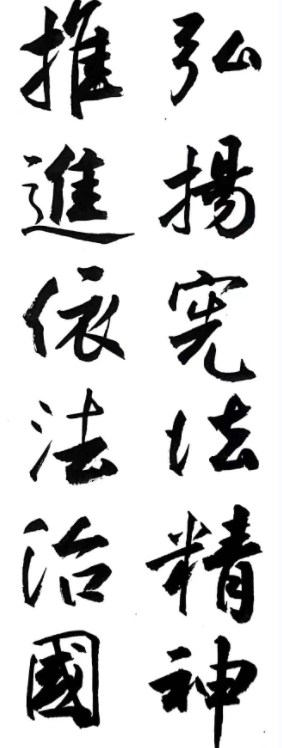 弘揚宪法精神
推進依法治國